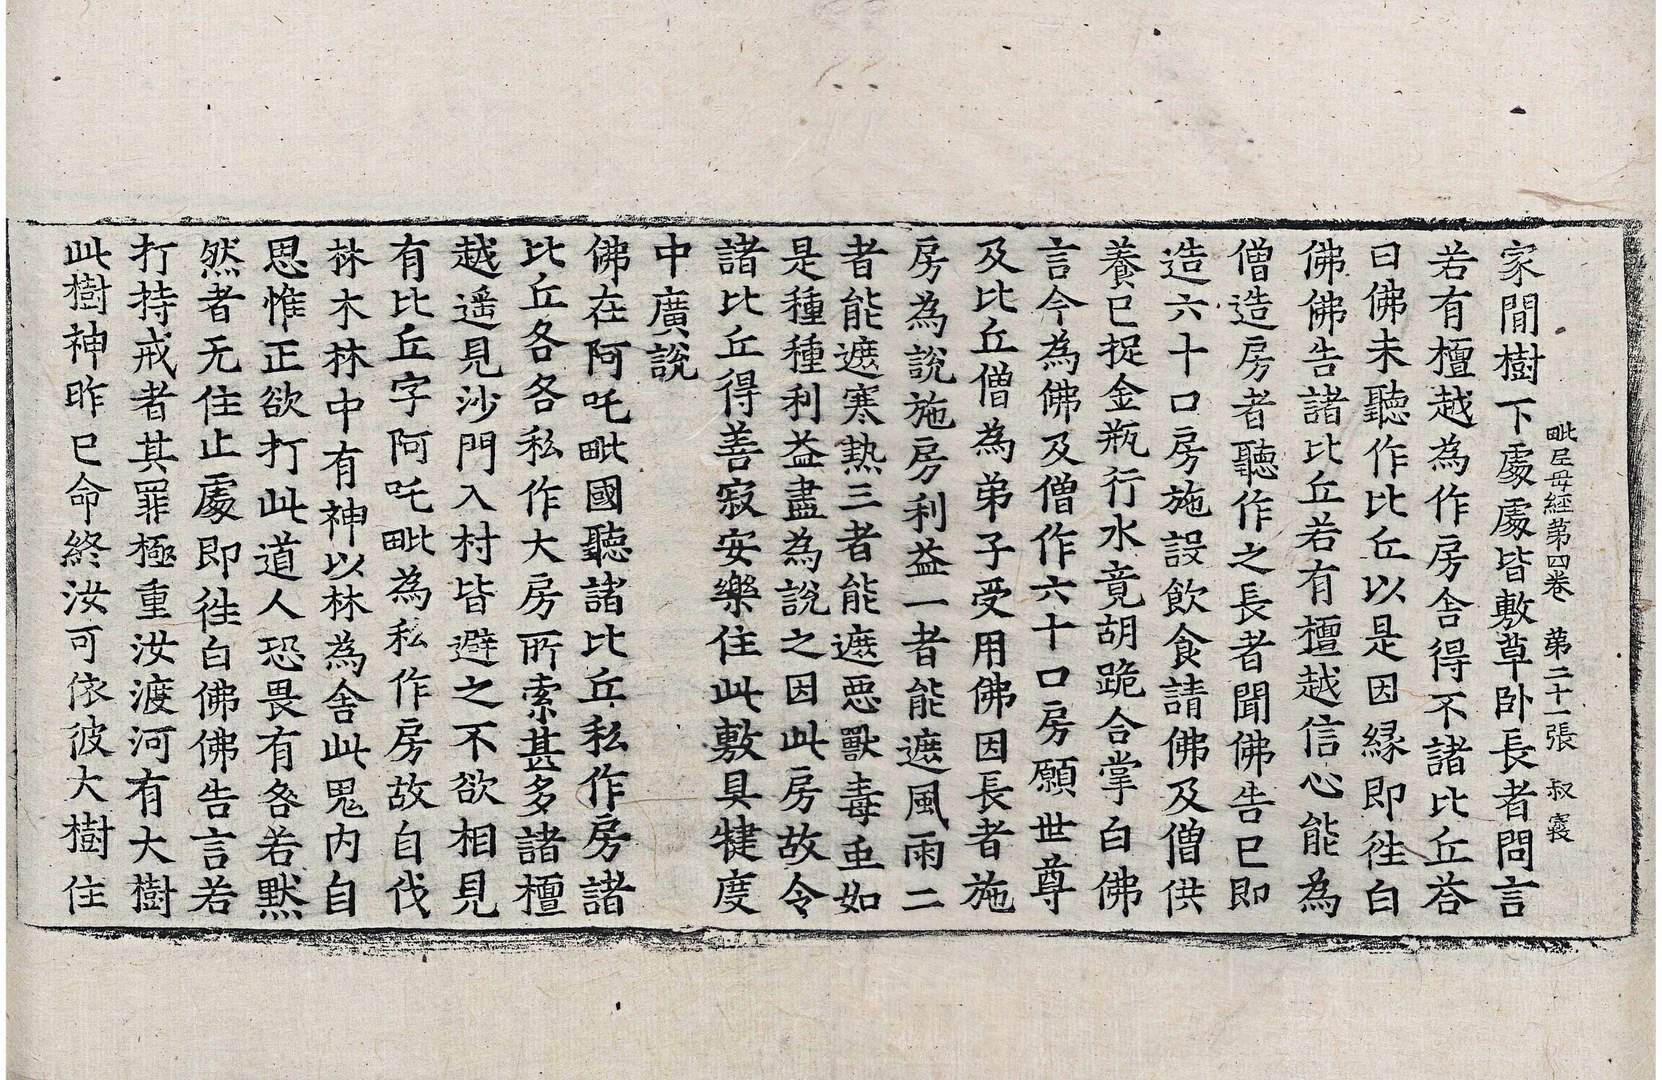 毗尼母經第四卷 第二十一張 叔 𡨥
家閒樹下處處皆敷草卧長者問言
若有檀越為作房舍得不諸比丘荅
曰佛未聽作比丘以是因縁即徃白
佛佛告諸比丘若有檀越信心能為
僧造房者聽作之長者聞佛告已即
造六十口房施設飲食請佛及僧供
養已捉金瓶行水竟胡跪合掌白佛
言今為佛及僧作六十口房願世尊
及比丘僧為弟子受用佛因長者施
房為說施房利益一者能遮風雨二
者能遮寒熱三者能遮惡獸毒虫如
是種種利益盡為說之因此房故令
諸比丘得善寂安樂住此敷具揵度
中廣說
佛在阿吒毗國聽諸比丘私作房諸
比丘各各私作大房所索甚多諸檀
越遥見沙門入村皆避之不欲相見
有比丘字阿吒毗為私作房故自伐
林木林中有神以林為舍此鬼内自
思惟正欲打此道人恐畏有咎若默
然者无住止處即徃白佛佛告言若
打持戒者其罪極重汝渡河有大樹
此樹神昨已命終汝可依彼大樹住